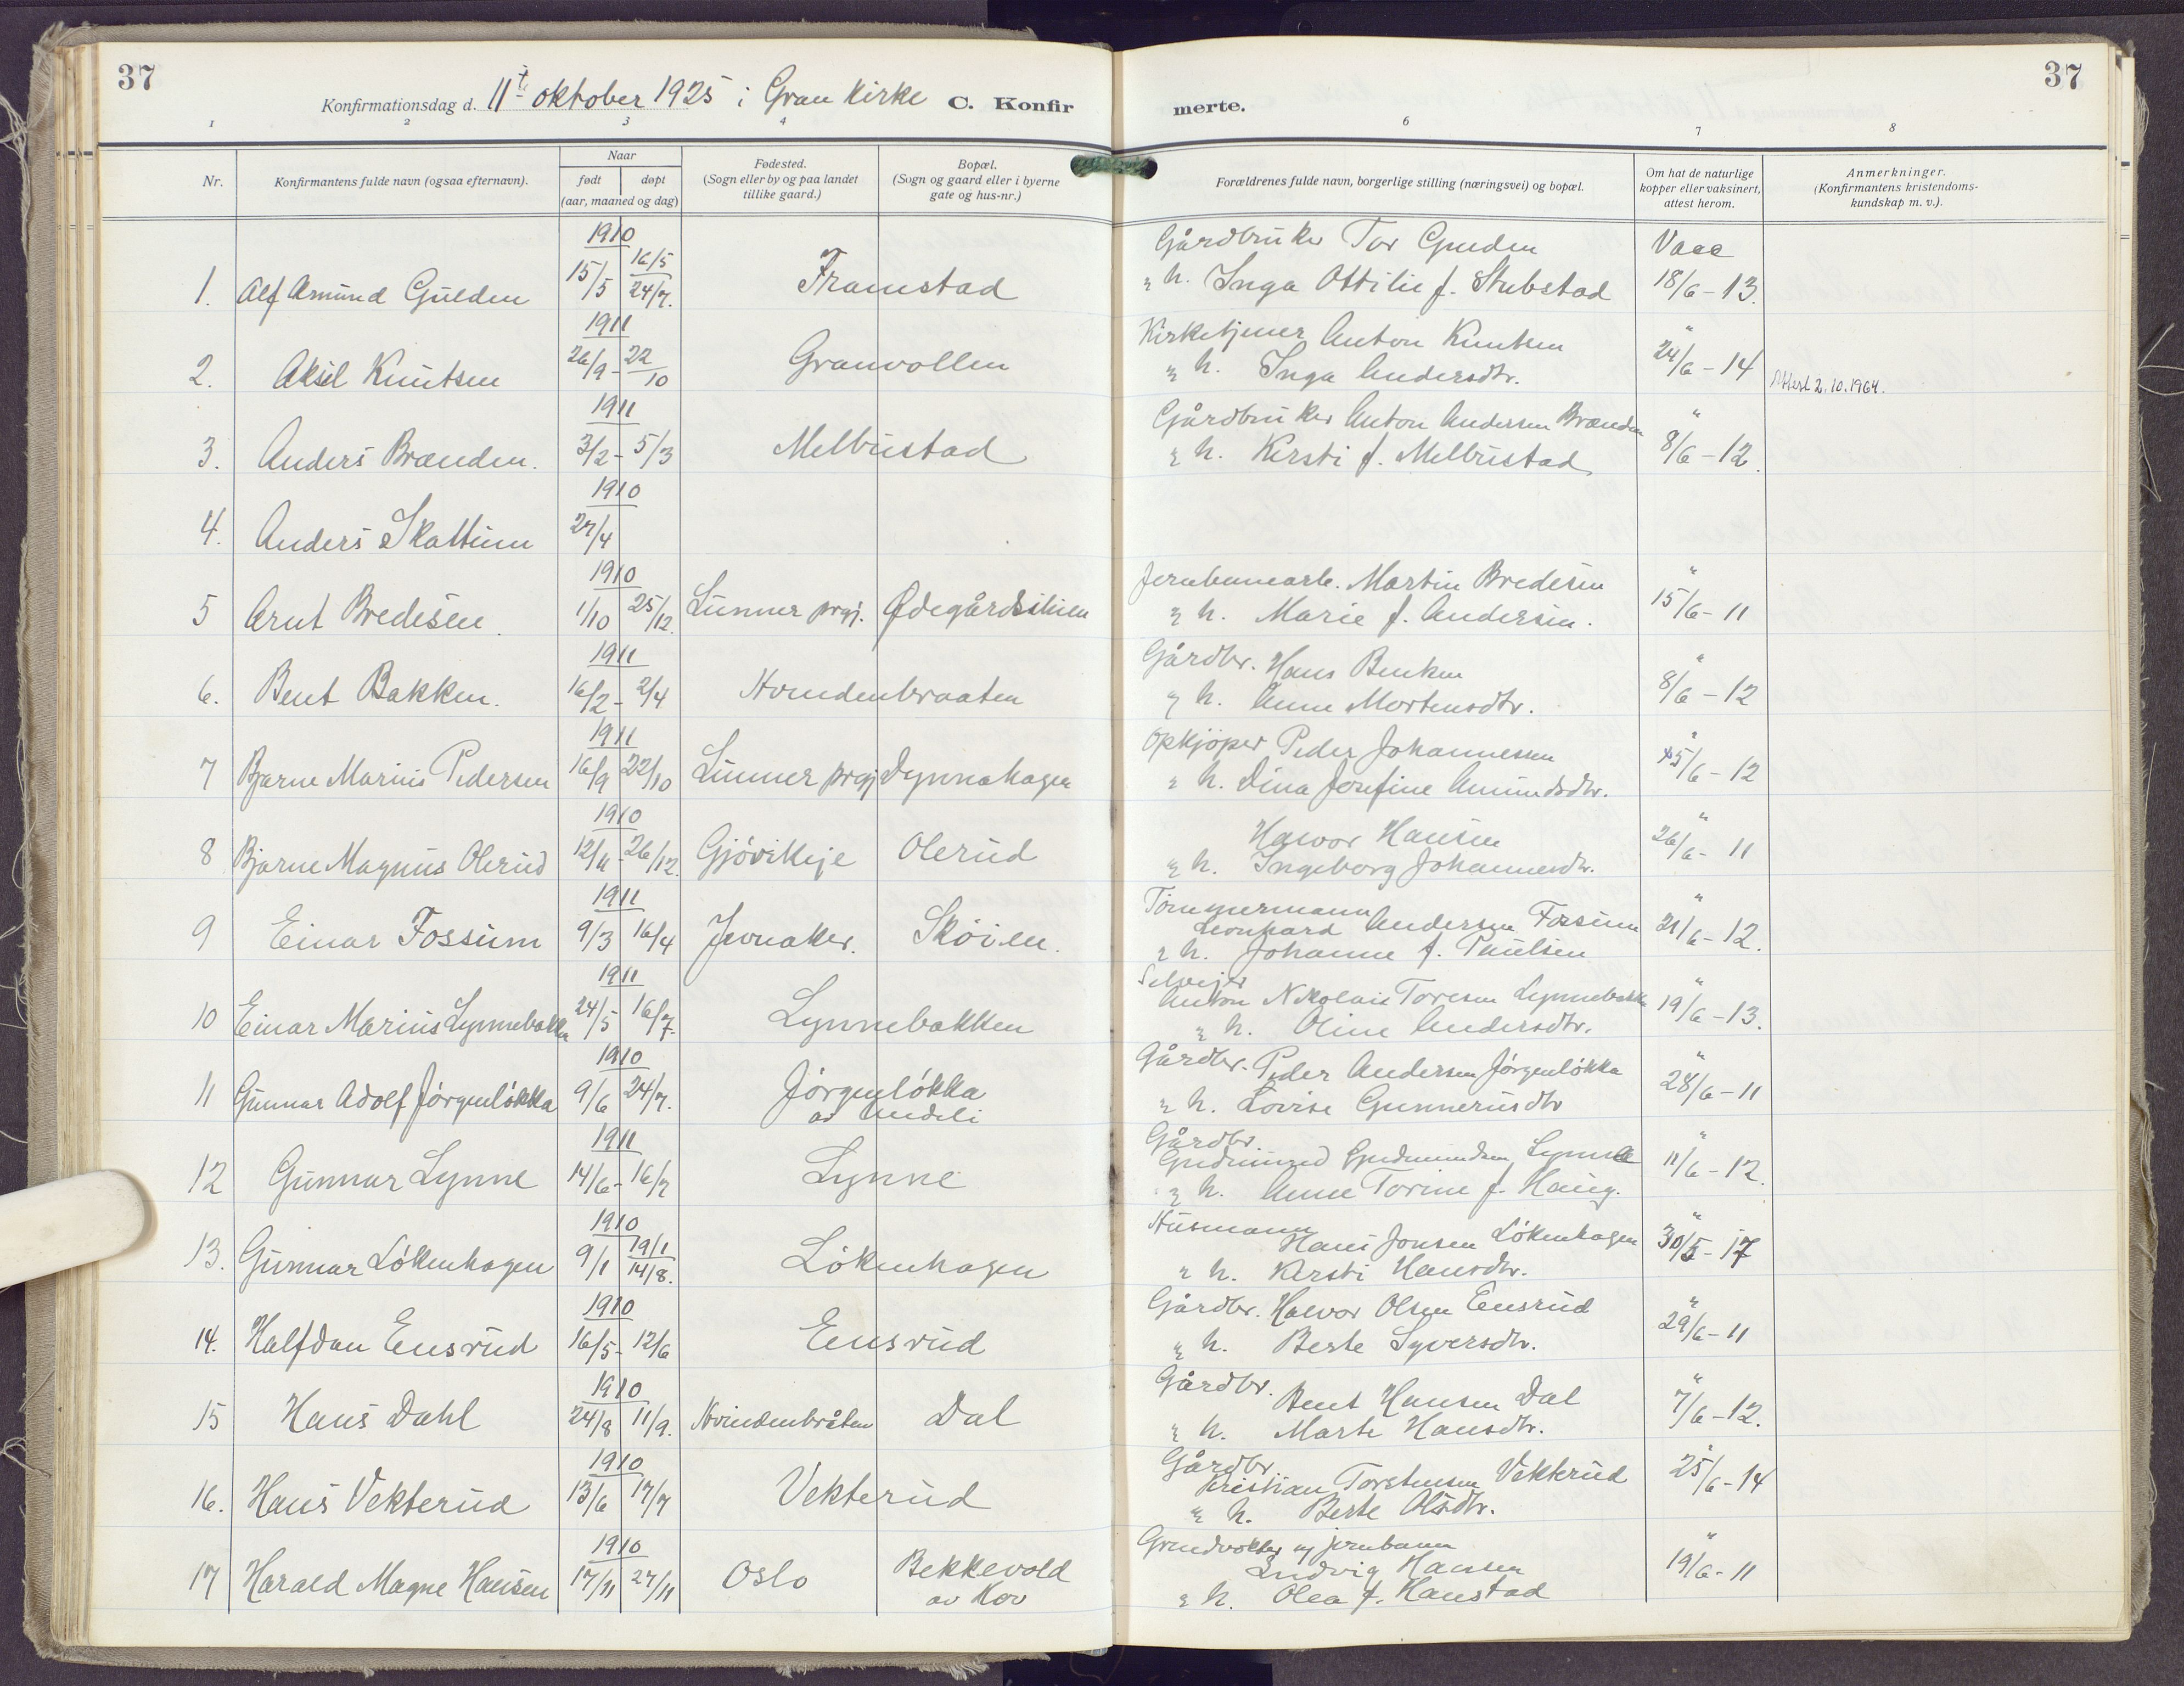 37
Konfirmationsdag d. 11te oktober 1925 i Gran kirke C. Konfir
merte.
37
1 2 3 4 6 7 8
Nr.
Konfirmantens fulde navn (ogsaa efternavn).
Naar
født døpt
(aar, maaned og dag)
Fødested.
(Sogn eller by og paa landet
tillike gaard.)
Bopæl.
(Sogn og gaard eller i byerne
gate og hus-nr.)
Forældrenes fulde navn, borgerlige stilling (næringsvei) og bopæl.
Om hat de naturlige
kopper eller vaksinert,
attest herom.
Anmerkninger.
(Konfirmantens kristendoms-
kundskap m. v.).
1910 Gårdbruker Tor Gulden Vacc
1. Alf Amund Gulden 15/5 16/5 24/7. Framstad & h. Inga Ottilie f. Stubstad 18/6 - 13.
1911 Kirketjener Anton Knutsen "
2. Aksel Knutsen 26/9 - 22/10 Granvollen & h. Inga Andersdtr. 24/6 - 14 Attest 2.10.1964.
1911 Gårdbruker Anton Andersen Brænden "
3. Anders Brænden. 3/2 - 5/3 Melbustad & h. Kersti f. Melbustad 8/6 - 12.
1910
4. Anders Skattum 27/4
1910 Jernbanearb. Martin Bredesen "
5 Arnt Bredesen. 1/10 25/12. Lunner prgj. Ødegårdslinen & h. Marie f. Andersen. 15/6 - 11
1911 Gårdbr. Hans Benken "
6. Bent Bakken. 16/2 - 2/4 Hvindenbraaten & h. Anne Mortensdtr. 8/6 - 12
1911 Opkjöper Peder Johannessen "
7 Bjarne Marius Pedersen 16/9 22/10 Lunner prgj Dynnahagen & h. Dina Josefine Amundsdtr. 15/6 - 12
1910 Halvor Hansen "
8 Bjarne Magnus Olerud 12/11 - 26/12. Gjöviklje Olerud & h. Ingeborg Johannesdtr. 26/6 - 11
1911 Tömmermann "
Leonhard Andersen Fossum
9 Einar Fossum 9/3 16/4 Jevnaker. Sköien. & h. Johanne f. Paulsen 21/6 - 12.
1911 Selveier "
Anton Nikolai Toresen Lynnebakken
10 Einar Marius Lynnebakken 24/5 16/7. Lynnebakken & h. Oline Andersdtr. 19/6 - 13.
1910 Gårdbr. Peder Andersen Jörgenlökka "
11 Gunnar Adolf Jörgenlökka 9/6 24/7. Jörgenlökka & h. Lovise Gunnerusdtr 28/6 - 11
av Undeli
1911 Gårdbr. "
Gudmund Gudmundsen Lynne
12 Gunnar Lynne 14/6 - 16/7 Lynne & h. Anne Torine f. Haug. 11/6 - 12.
1910 Husmann "
Hans Jonsen Lökenhagen
13. Gunnar Lökenhagen 9/1 19/1 14/8. Lökenhagen & h. Kersti Hansdtr. 30/5 - 17
1910 Gårdbr. Halvor Olsen Eensrud "
14. Halfdan Eensrud 16/5 - 12/6 Eensrud & h. Berte Syversdtr. 29/6 - 11
1910 Gårdbr. "
Bent Hansen Dal
15 Hans Dahl 24/8 11/9. Hvindenbråten Dal & h. Marte Hansdtr. 7/6 - 12.
1910 Gårdbr. "
Kristian Torstensen Vekterud
16. Hans Vekterud 13/6 17/7 Vekterud & h. Berte Olsdtr. 25/6 - 14
1910 jernbanen "
Ludvig Hansen
17 Harald Magne Hansen 17/11 27/11 Oslo Bekkevold & h. Olea f. Hanstad 19/6 - 11
av Hov